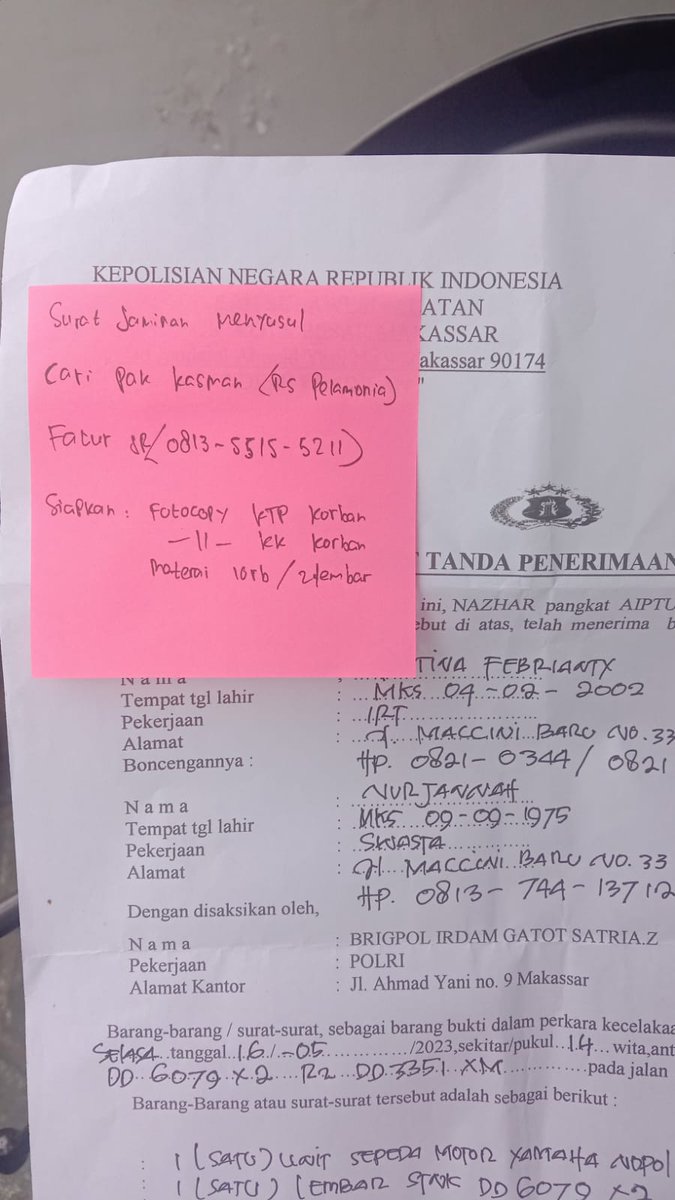 KEPOLISIAN NEGARA REPUBLIK INDONESIA
ATAN
KASSAR
akassar 90174
"
Surat Jaminan menyusul
Cari Pak Kasman (RS Pelamonia)
Fatur (0813-5515-5211)
Siapkan : Fotocopy KTP Korban
-11- KK Korban
Materai 10rb / 2 lembar
TANDA PENERIMAAN
ini, NAZHAR pangkat AIPTU
ebut di atas, telah menerima b
Nama : TINA FEBRIANTY
Tempat tgl lahir : MKS 04-02-2002
Pekerjaan : IRT
Alamat : Jl. MACCINI BARU NO. 33
Boncengannya : HP. 0821-0344/0821
Nama : NURJANNAH
Tempat tgl lahir : MKS 09-09-1975
Pekerjaan : SWASTA
Alamat : Jl. MACCINI BARU NO. 33
HP. 0813-744-13712
Dengan disaksikan oleh,
Nama : BRIGPOL IRDAM GATOT SATRIA.Z
Pekerjaan : POLRI
Alamat Kantor : Jl. Ahmad Yani no. 9 Makassar
Barang-barang / surat-surat, sebagai barang bukti dalam perkara kecelakaa
SELASA tanggal 16/-05 /2023,sekitar/pukul 14 wita,ant
DD 6079 X2 R2 DD 3351 XM pada jalan
Barang-Barang atau surat-surat tersebut adalah sebagai berikut :
: 1 (SATU) UNIT SEPEDA MOTOR YAMAHA NOPOL
: 1 (SATU) LEMBAR STNK DD 6079 X2